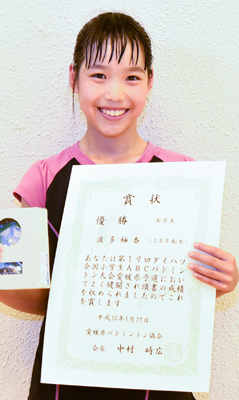 賞状
優勝 女子A
波多柚杏
あなたは第19回ダイハツ
全国小学生ABCバドミン
トン大会愛媛県予選におい
てよく健闘され頭書の成績
を収められましたのでこれ
を賞します
愛媛県バドミントン協会
会長 中村時広